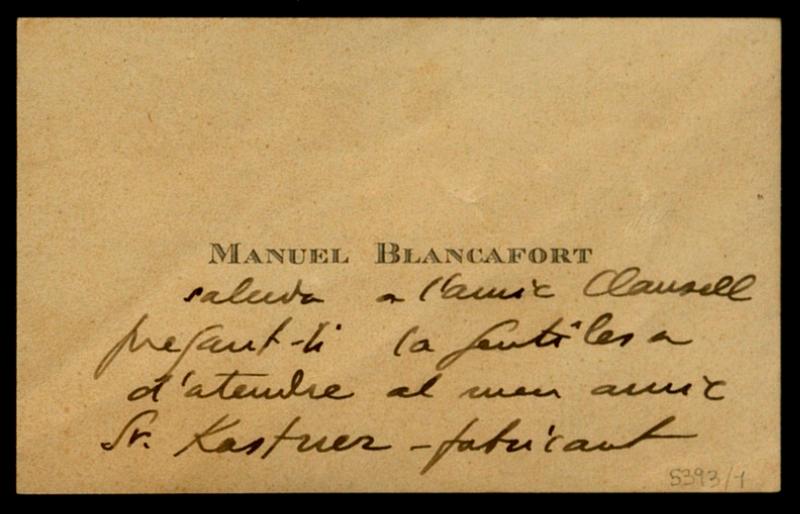 MANUEL BLANCAFORT
saluda a l'amic Clausell
pregant-li la gentilesa
d'atendre al meu amic
Sr. Kastner - fabricant
5393/1